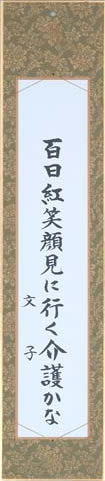 百日紅笑顔見に行く介護かな
文子